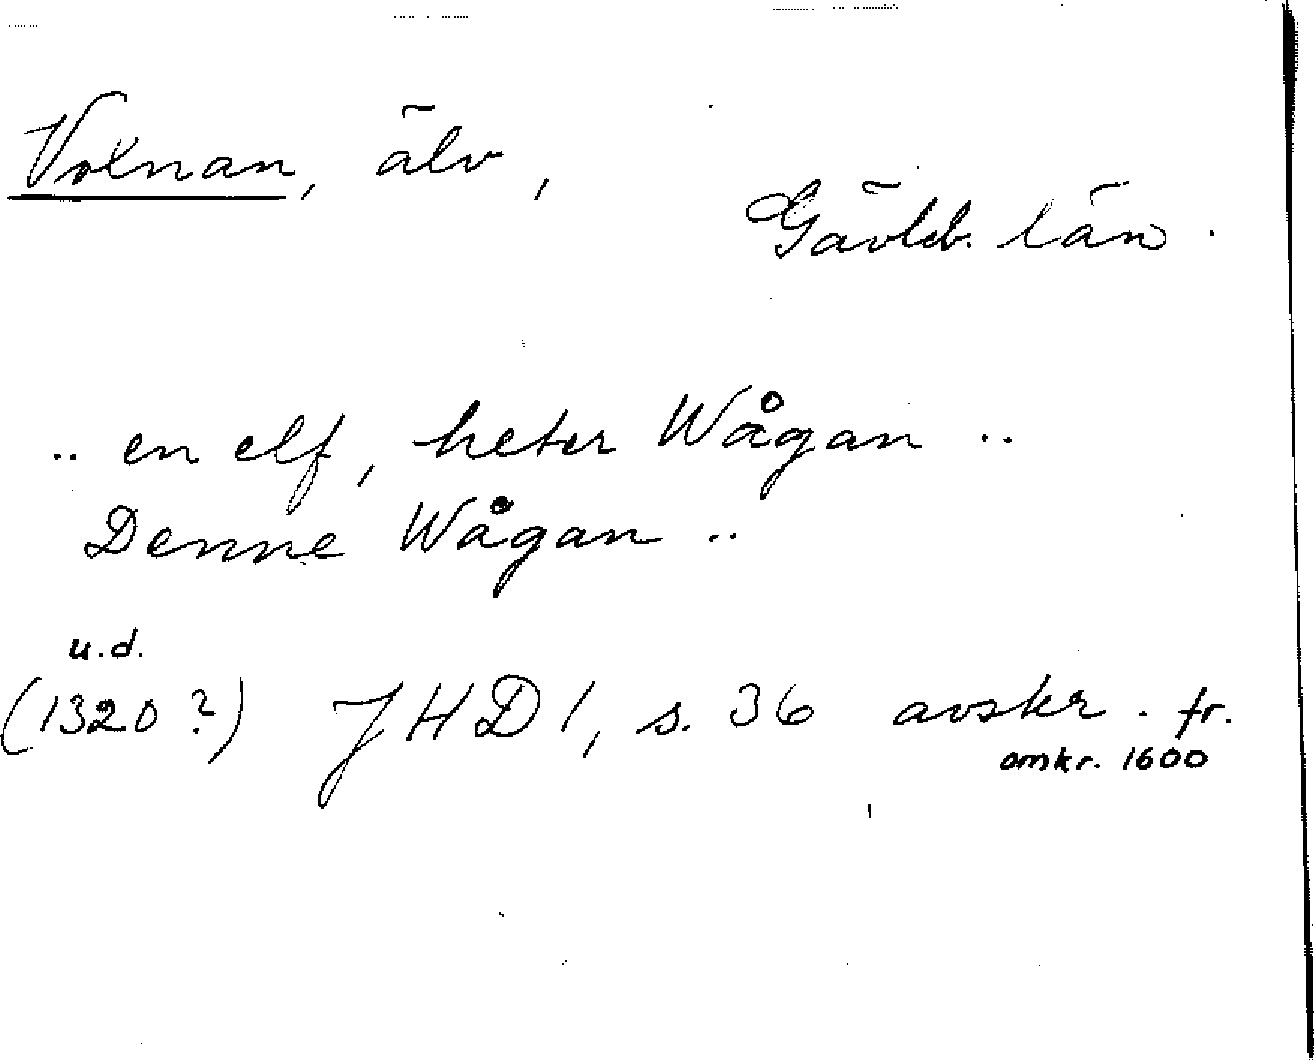 Voxnan, älv,
Gävleb. län.
.. en elf, heter Wågan ..
Denne Wågan ..
u.d.
(1320?) JHD 1, s. 36 avskr. fr.
omkr. 1600